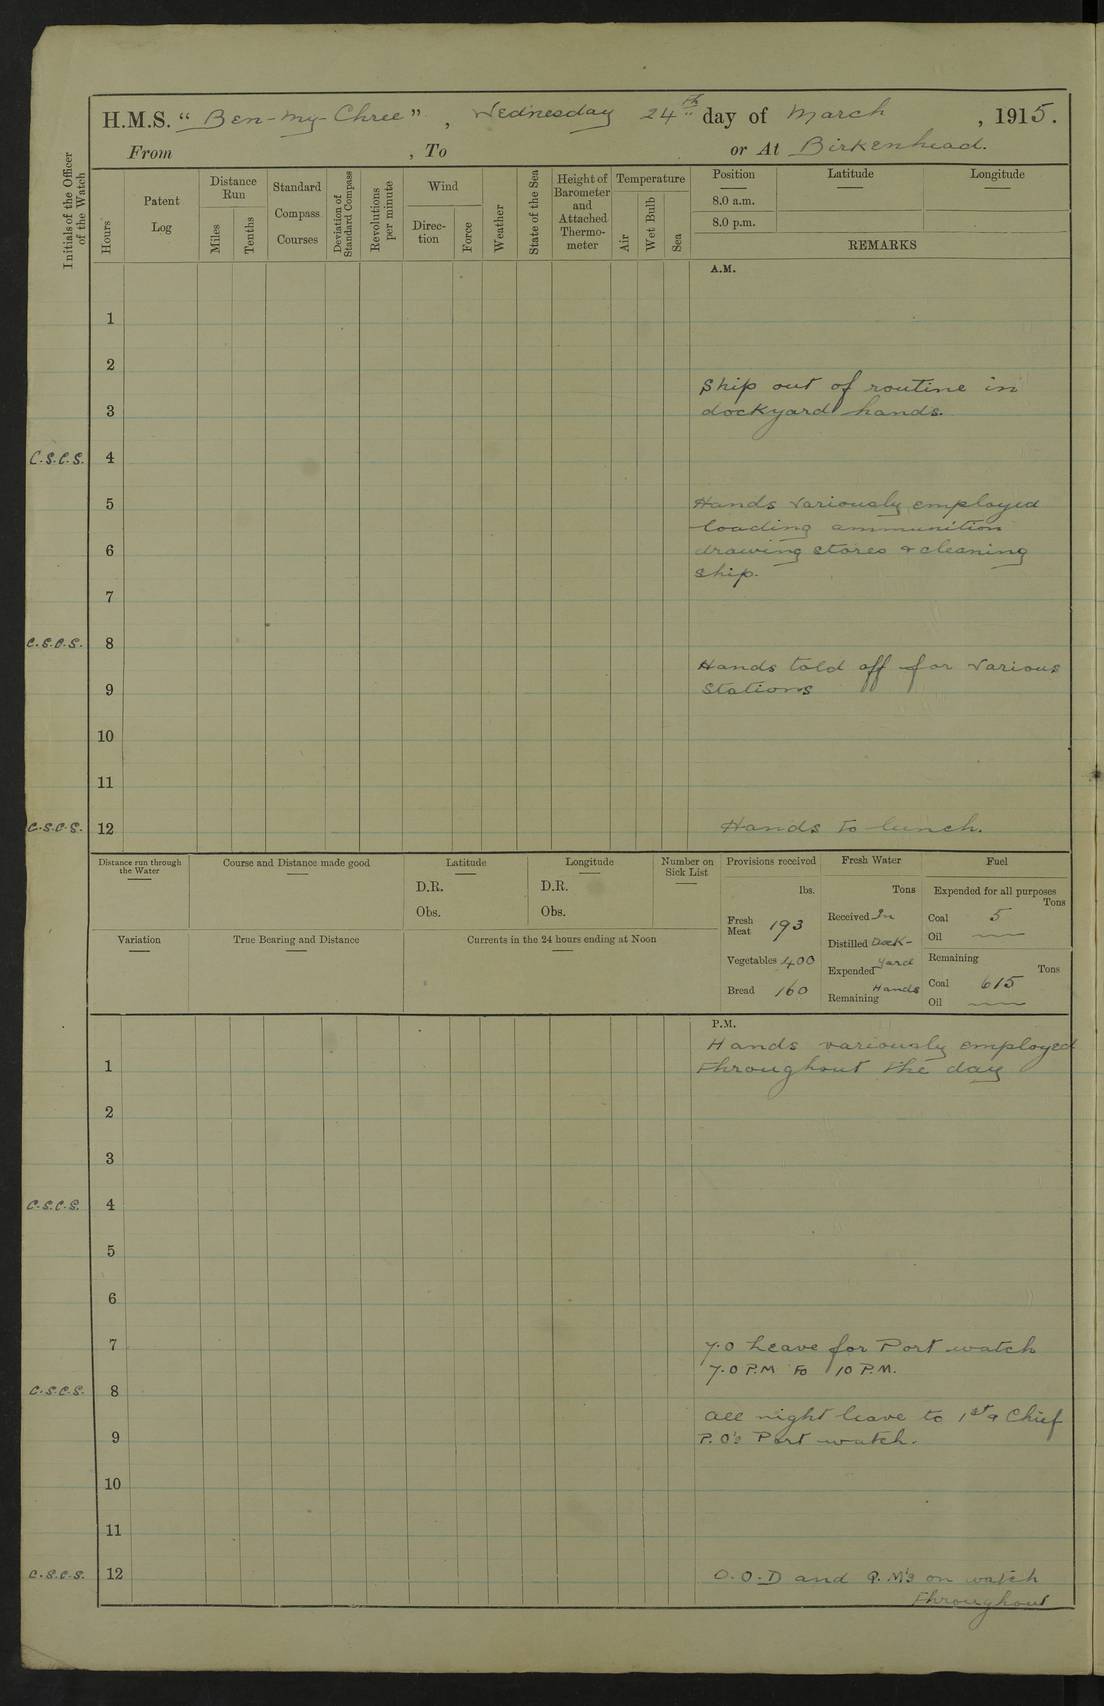 H.M.S. “ Ben-my-Chree ” , Wednesday 24th day of March , 1915.
From , To or At Birkenhead.
Initials of the Officer of the Watch
Hours
Patent Log
Distance Run
Miles
Tenths
Standard Compass Courses
Deviation of Standard Compass
Revolutions per minute
Wind
Direction
Force
Weather
State of the Sea
Height of Barometer and Attached Thermometer
Temperature
Air
Wet Bulb
Sea
Position Latitude Longitude
8.0 a.m.
8.0 p.m.
REMARKS
A.M.
1
2
Ship out of routine in
3 dockyard hands.
C.S.C.S. 4
5 Hands variously employed
loading ammunition
6 drawing stores & cleaning
ship.
7
C.S.C.S. 8
Hands told off for various
9 Stations
10
11
C.S.C.S. 12 Hands to lunch.
Distance run through the Water
Course and Distance made good
Latitude
D.R.
Obs.
Longitude
D.R.
Obs.
Number on Sick List
Provisions received
lbs.
Fresh Meat 193
Vegetables 400
Bread 160
Fresh Water
Tons
Received In
Distilled Dock-
Expended yard
Remaining Hands
Fuel
Expended for all purposes
Tons
Coal 5
Oil
Remaining
Tons
Coal 615
Oil
Variation
True Bearing and Distance
Currents in the 24 hours ending at Noon
P.M.
Hands variously employed
1 throughout the day
2
3
C.S.C.S. 4
5
6
7 7.0 Leave for Port watch
7.0 P.M to 10 P.M.
C.S.C.S. 8
all night leave to 1st & Chief
9 P.O's Port watch.
10
11
C.S.C.S. 12 O.O.D and Q.M's on watch
throughout